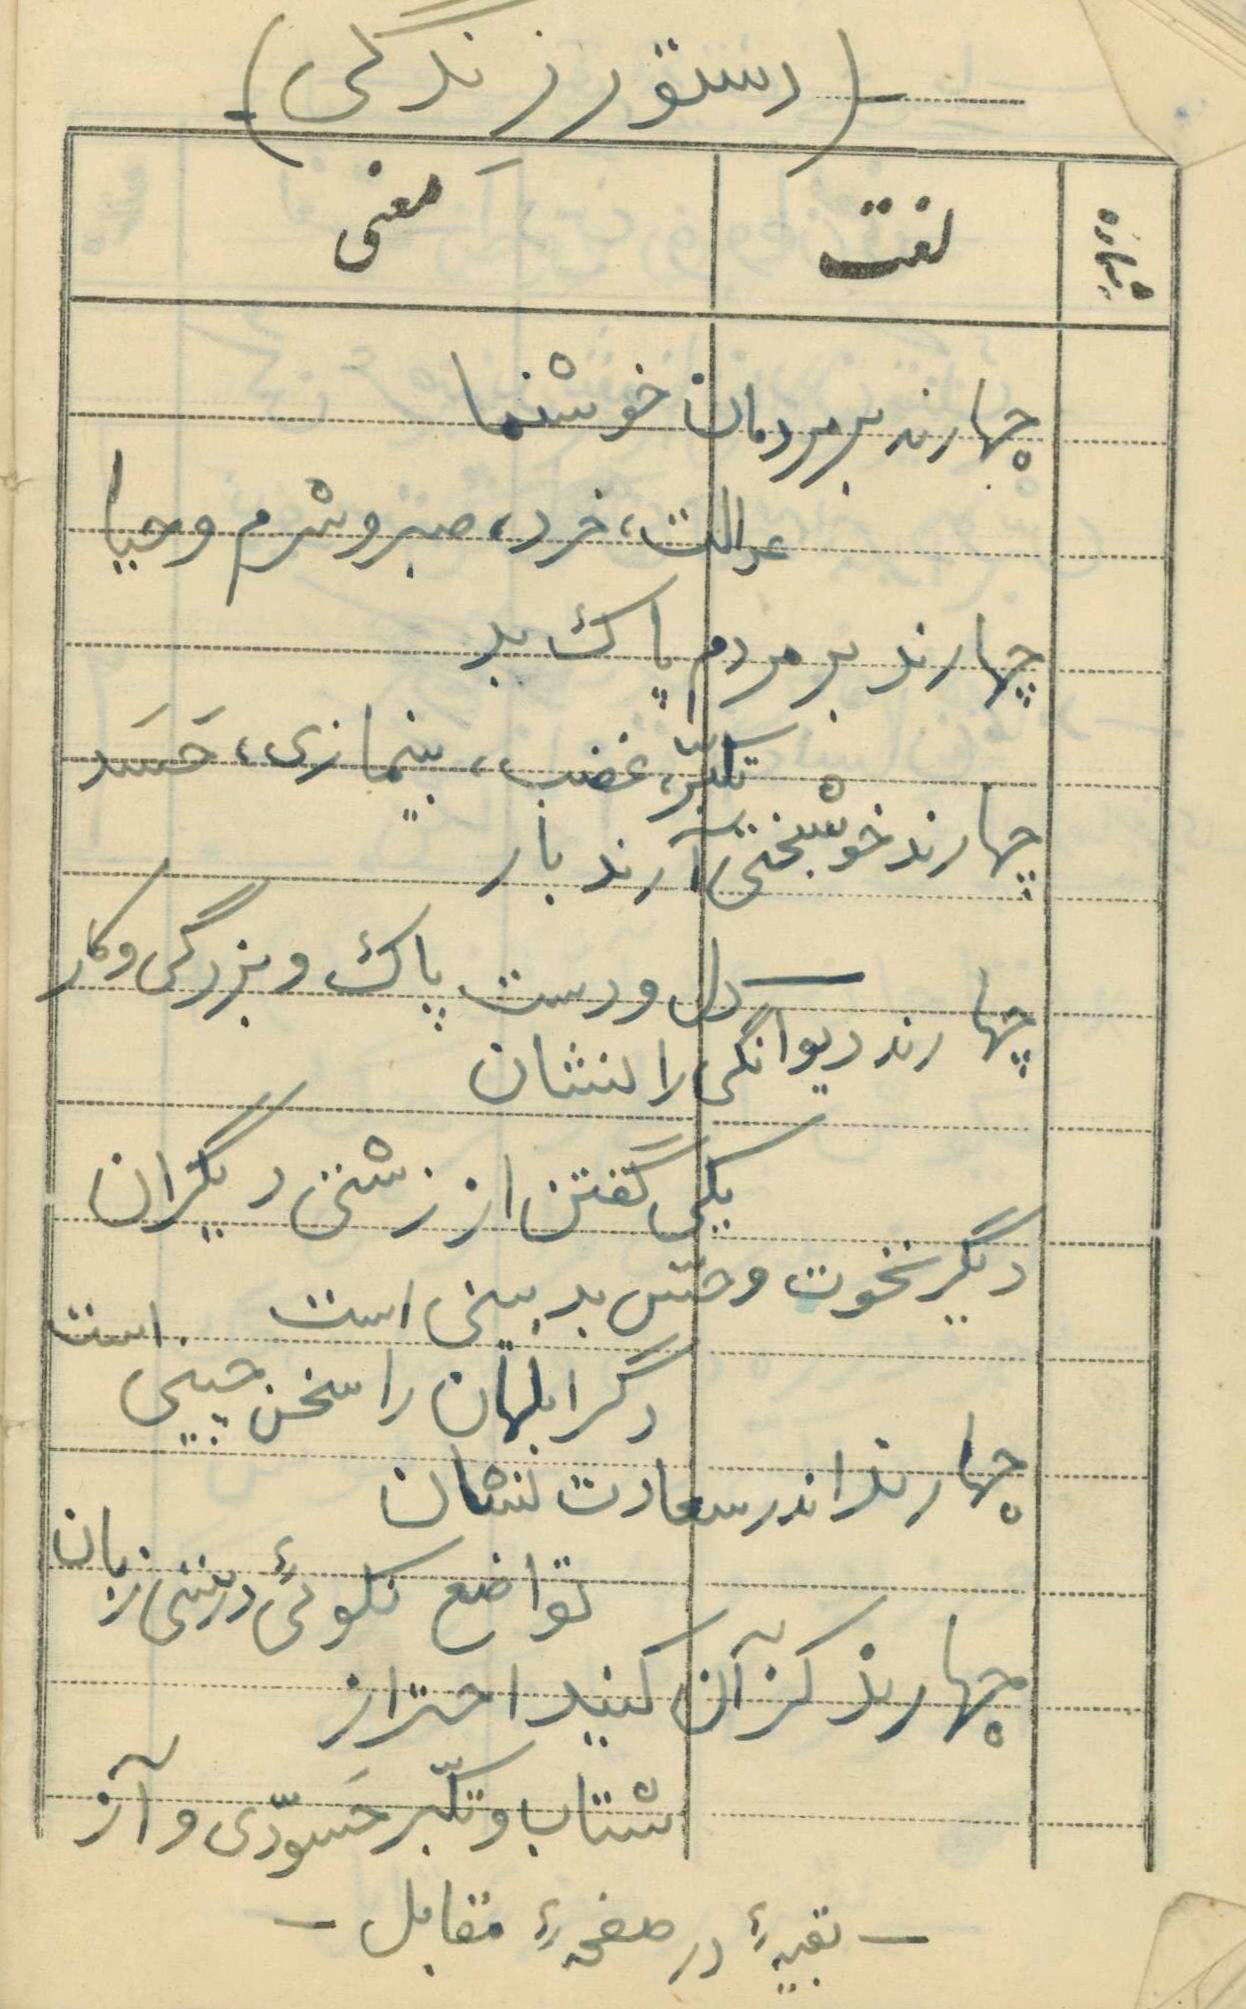 (دستور زندگی)
شماره لغت معنی
چهارند بر مردمان خوشنما
عدالت، خرد، صبر و شرم و حیا
چهارند بر مردم پاک بد
تکبّر، غضب، بینمازی، حَسَد
چهارند خوشبختی آرند بار
دل و دست پاک و بزرگی و کار
چهارند دیوانگی را نشان
یکی گفتن از زشتی دیگران
دیگر نخوت و حسّ بد بینی است
دگر ابلهان را سخن چینی است
چهارند اندر سعادت نشان
تواضع نکوئی درستی زبان
چهارند کز آن کنید احتراز
شتاب و تکبّر حَسودّی و آز
- بقیهٔ در صفحهٔ مقابل -